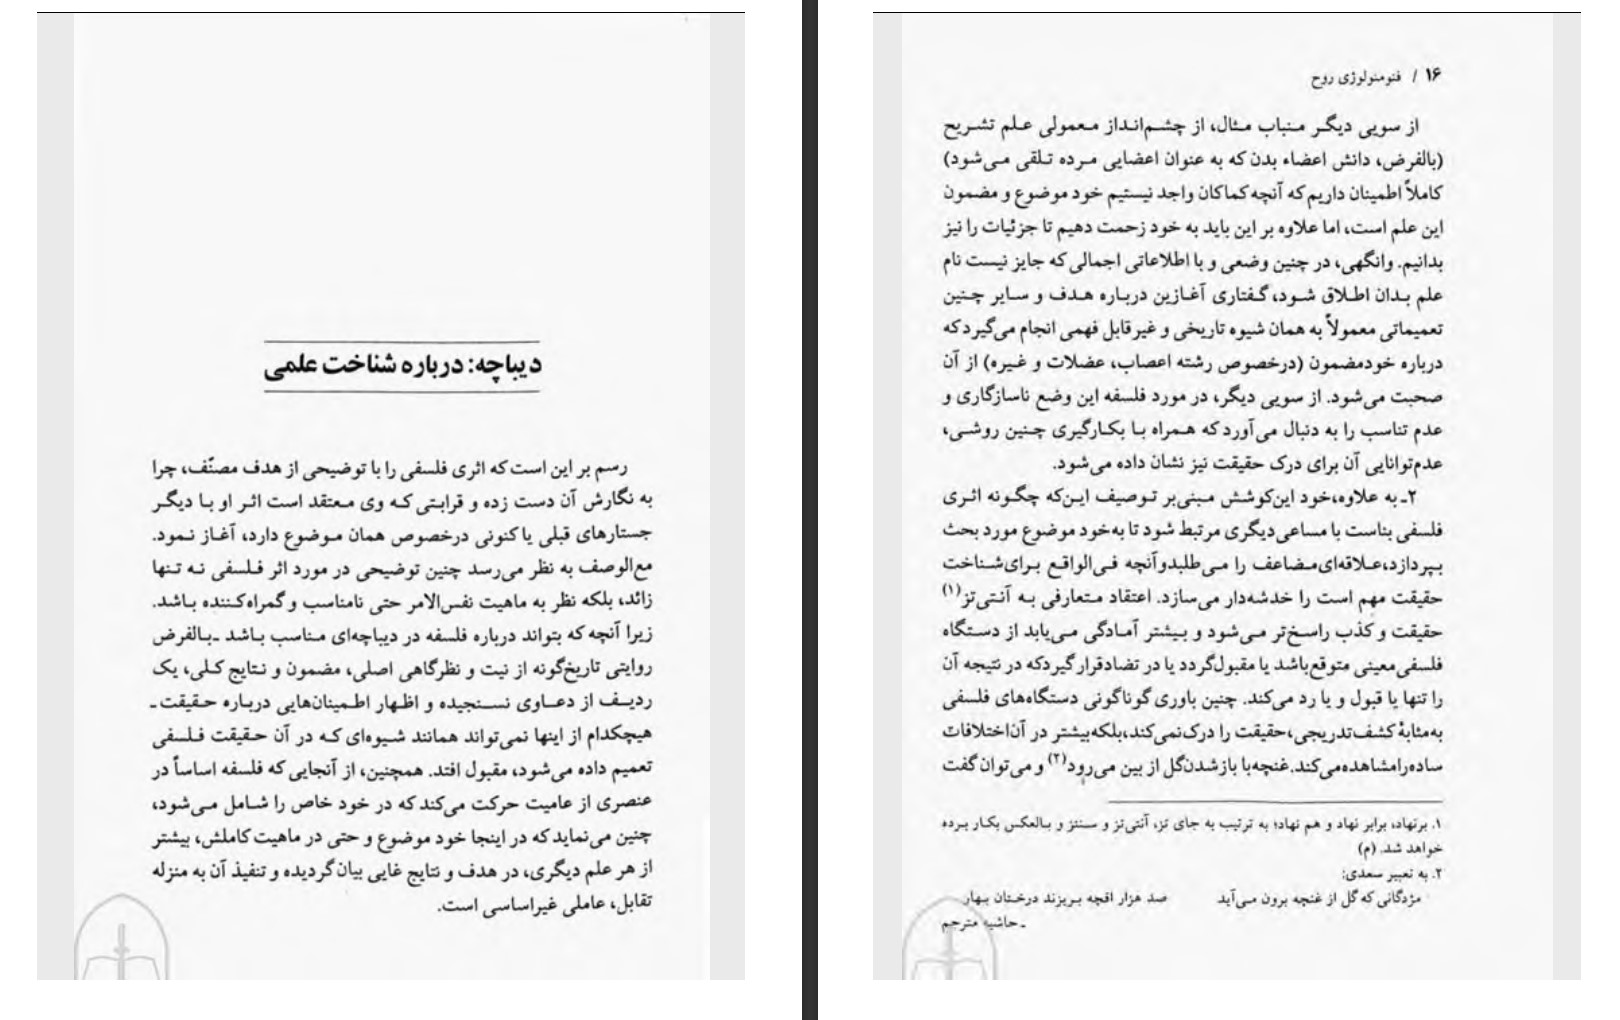 دیباچه: درباره شناخت علمی
رسم بر این است که اثری فلسفی را با توضیحی از هدف مصنّف، چرا
به نگارش آن دست زده و قرابتی که وی معتقد است اثر او با دیگر
جستارهای قبلی یا کنونی درخصوص همان موضوع دارد، آغاز نمود.
مع‌الوصف به نظر می‌رسد چنین توضیحی در مورد اثر فلسفی نه تنها
زائد، بلکه نظر به ماهیت نفس‌الامر حتی نامناسب و گمراه‌کننده باشد.
زیرا آنچه که بتواند درباره فلسفه در دیباچه‌ای مناسب باشد ـ بالفرض
روایتی تاریخ‌گونه از نیت و نظرگاهی اصلی، مضمون و نتایج کلی، یک
ردیف از دعاوی نسنجیده و اظهار اطمینان‌هایی درباره حقیقت ـ
هیچکدام از اینها نمی‌تواند همانند شیوه‌ای که در آن حقیقت فلسفی
تعمیم داده می‌شود، مقبول افتد. همچنین، از آنجایی که فلسفه اساساً در
عنصری از عامیت حرکت می‌کند که در خود خاص را شامل می‌شود،
چنین می‌نماید که در اینجا خود موضوع و حتی در ماهیت کاملش، بیشتر
از هر علم دیگری، در هدف و نتایج غایی بیان گردیده و تنفیذ آن به منزله
تقابل، عاملی غیراساسی است.
۱۶ / فنومنولوژی روح
از سویی دیگر منباب مثال، از چشم‌انداز معمولی علم تشریح
(بالفرض، دانش اعضاء بدن که به عنوان اعضایی مرده تلقی می‌شود)
کاملاً اطمینان داریم که آنچه کماکان واجد نیستیم خود موضوع و مضمون
این علم است، اما علاوه بر این باید به خود زحمت دهیم تا جزئیات را نیز
بدانیم. وانگهی، در چنین وضعی و با اطلاعاتی اجمالی که جایز نیست نام
علم بدان اطلاق شود، گفتاری آغازین درباره هدف و سایر چنین
تعمیماتی معمولاً به همان شیوه تاریخی و غیرقابل فهمی انجام می‌گیرد که
درباره خودمضمون (درخصوص رشته اعصاب، عضلات و غیره) از آن
صحبت می‌شود. از سویی دیگر، در مورد فلسفه این وضع ناسازگاری و
عدم تناسب را به دنبال می‌آورد که همراه با بکارگیری چنین روشی،
عدم‌توانایی آن برای درک حقیقت نیز نشان داده می‌شود.
۲ـ به علاوه، خود این کوشش مبنی بر توصیف این‌که چگونه اثری
فلسفی بناست با مساعی دیگری مرتبط شود تا به خود موضوع مورد بحث
بپردازد، علاقه‌ای مضاعف را می‌طلبد و آنچه فی‌الواقع برای شناخت
حقیقت مهم است را خدشه‌دار می‌سازد. اعتقاد متعارفی به آنتی‌تز(۱)
حقیقت و کذب راسخ‌تر می‌شود و بیشتر آمادگی می‌یابد از دستگاه
فلسفی معینی متوقع باشد یا مقبول گردد یا در تضاد قرار گیرد که در نتیجه آن
را تنها یا قبول و یا رد می‌کند. چنین باوری گوناگونی دستگاه‌های فلسفی
به‌مثابهٔ کشف تدریجی، حقیقت را درک نمی‌کند، بلکه بیشتر در آن اختلافات
ساده را مشاهده می‌کند. غنچه با باز شدن گل از بین می‌رود(۲) و می‌توان گفت
۱. برنهاد، برابر نهاد و هم نهاد؛ به ترتیب به جای تز، آنتی‌تز و سنتز و بالعکس بکار برده
خواهد شد. (م)
۲. به تعبیر سعدی:
مژدگانی که گل از غنچه برون می‌آید صد هزار اقچه بریزند درختان بهار
ـ حاشیه مترجم